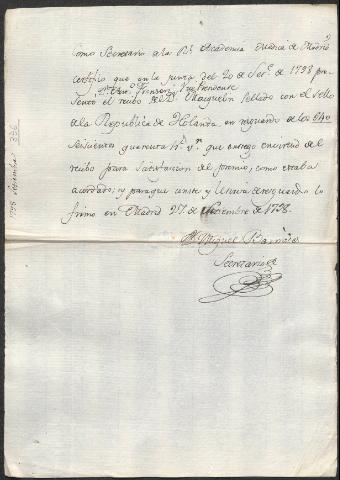 Como Secretario de la Rl. Academia Medica de Madrid
certifico que en la junta del 20 de Sere. de 1798 pre-
Vicepresidente
sentó el recibo del Dr. sellado con el sello
de la Republica de Holanda en resguardo de los 640
seiscientos quarenta Rs. vn. que entrego en virtud del
recibo para satisfaccion del premio, como estaba
acordado; y para que conste y sirva de resguardo lo
firmo en Madrid 27 de Setiembre de 1798.
Miguel
Secretario
1798 Septiembre 336